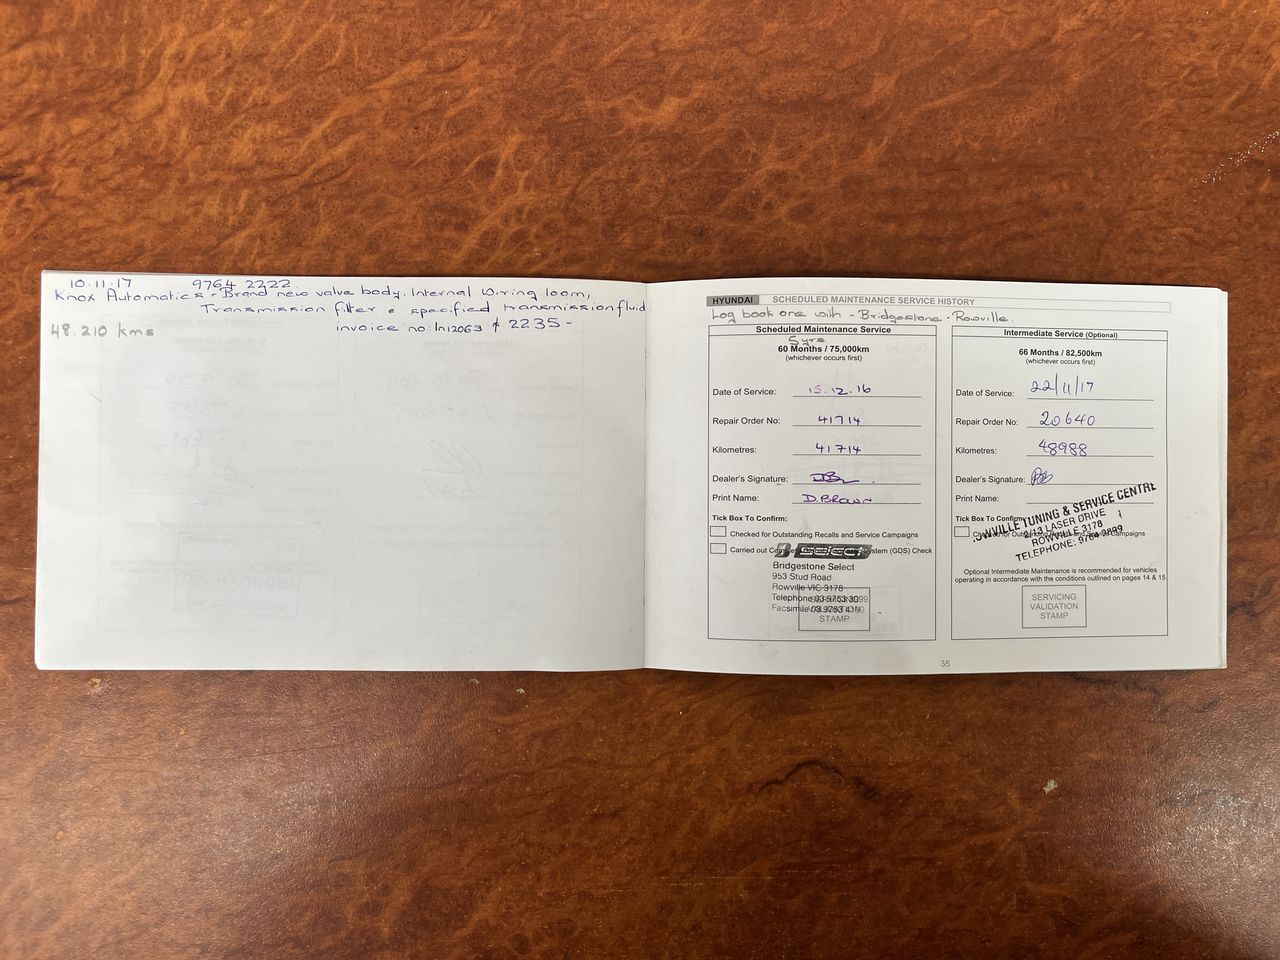 10.11.17 9764 2222
Knox Automatics - Brand new valve body, Internal Wiring loom,
Transmission filter & specified transmission fluid
48.210 kms invoice no: In12063 $ 2235 -
HYUNDAI SCHEDULED MAINTENANCE SERVICE HISTORY
Log book one with - Bridgestone - Rowville.
Scheduled Maintenance Service
5 yrs
60 Months / 75,000km
(whichever occurs first)
Date of Service: 15.12.16
Repair Order No: 41714
Kilometres: 41714
Dealer's Signature:
Print Name: D. BROWN
Tick Box To Confirm:
Checked for Outstanding Recalls and Service Campaigns
Carried out System (GDS) Check
Select
Bridgestone Select
953 Stud Road
Rowville VIC 3178
Telephone 03 9753
Facsimile 03 9753
STAMP
Intermediate Service (Optional)
66 Months / 82,500km
(whichever occurs first)
Date of Service: 22/11/17
Repair Order No: 20640
Kilometres: 48988
Dealer's Signature:
Print Name:
Tick Box To Confirm
Campaigns
TUNING & SERVICE CENTRE
2/13 LASER DRIVE
ROWVILLE 3178
TELEPHONE:
Optional Intermediate Maintenance is recommended for vehicles
operating in accordance with the conditions outlined on pages 14 & 15
SERVICING
VALIDATION
STAMP
35